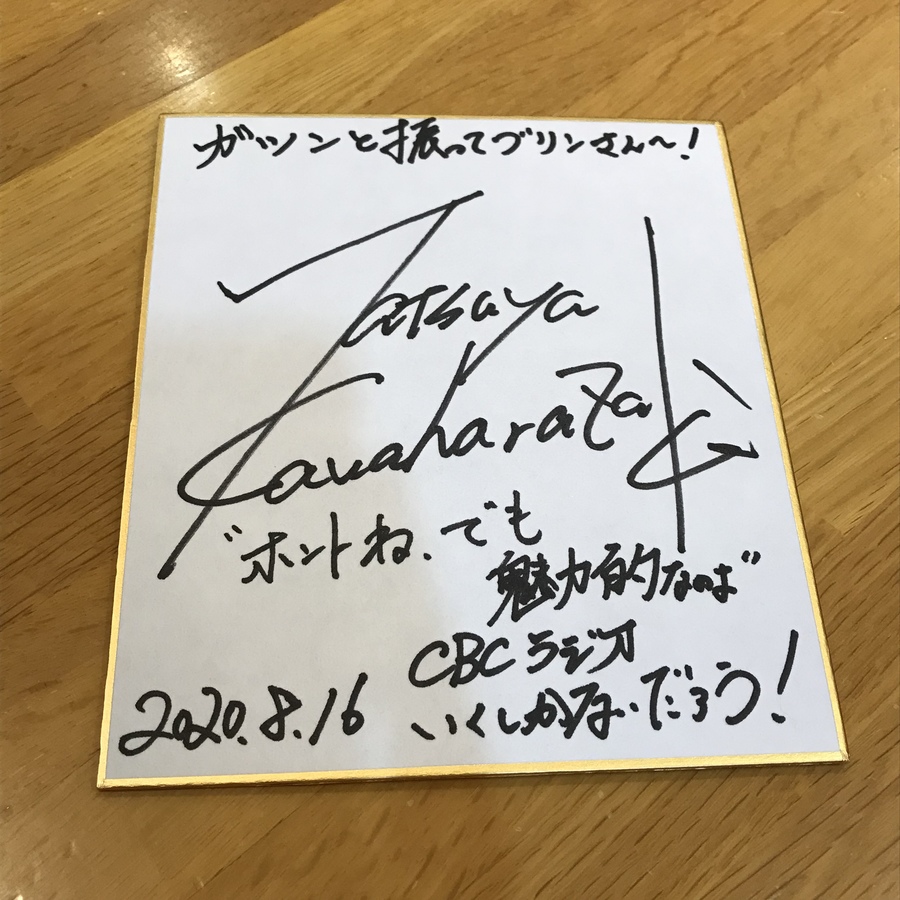 ガツンと振ってプリンさん〜!
Tatsuya
Kawaharazaki
"ホントね、でも
魅力的なのは"
CBCラジオ
いくしかないだろう!
2020.8.16